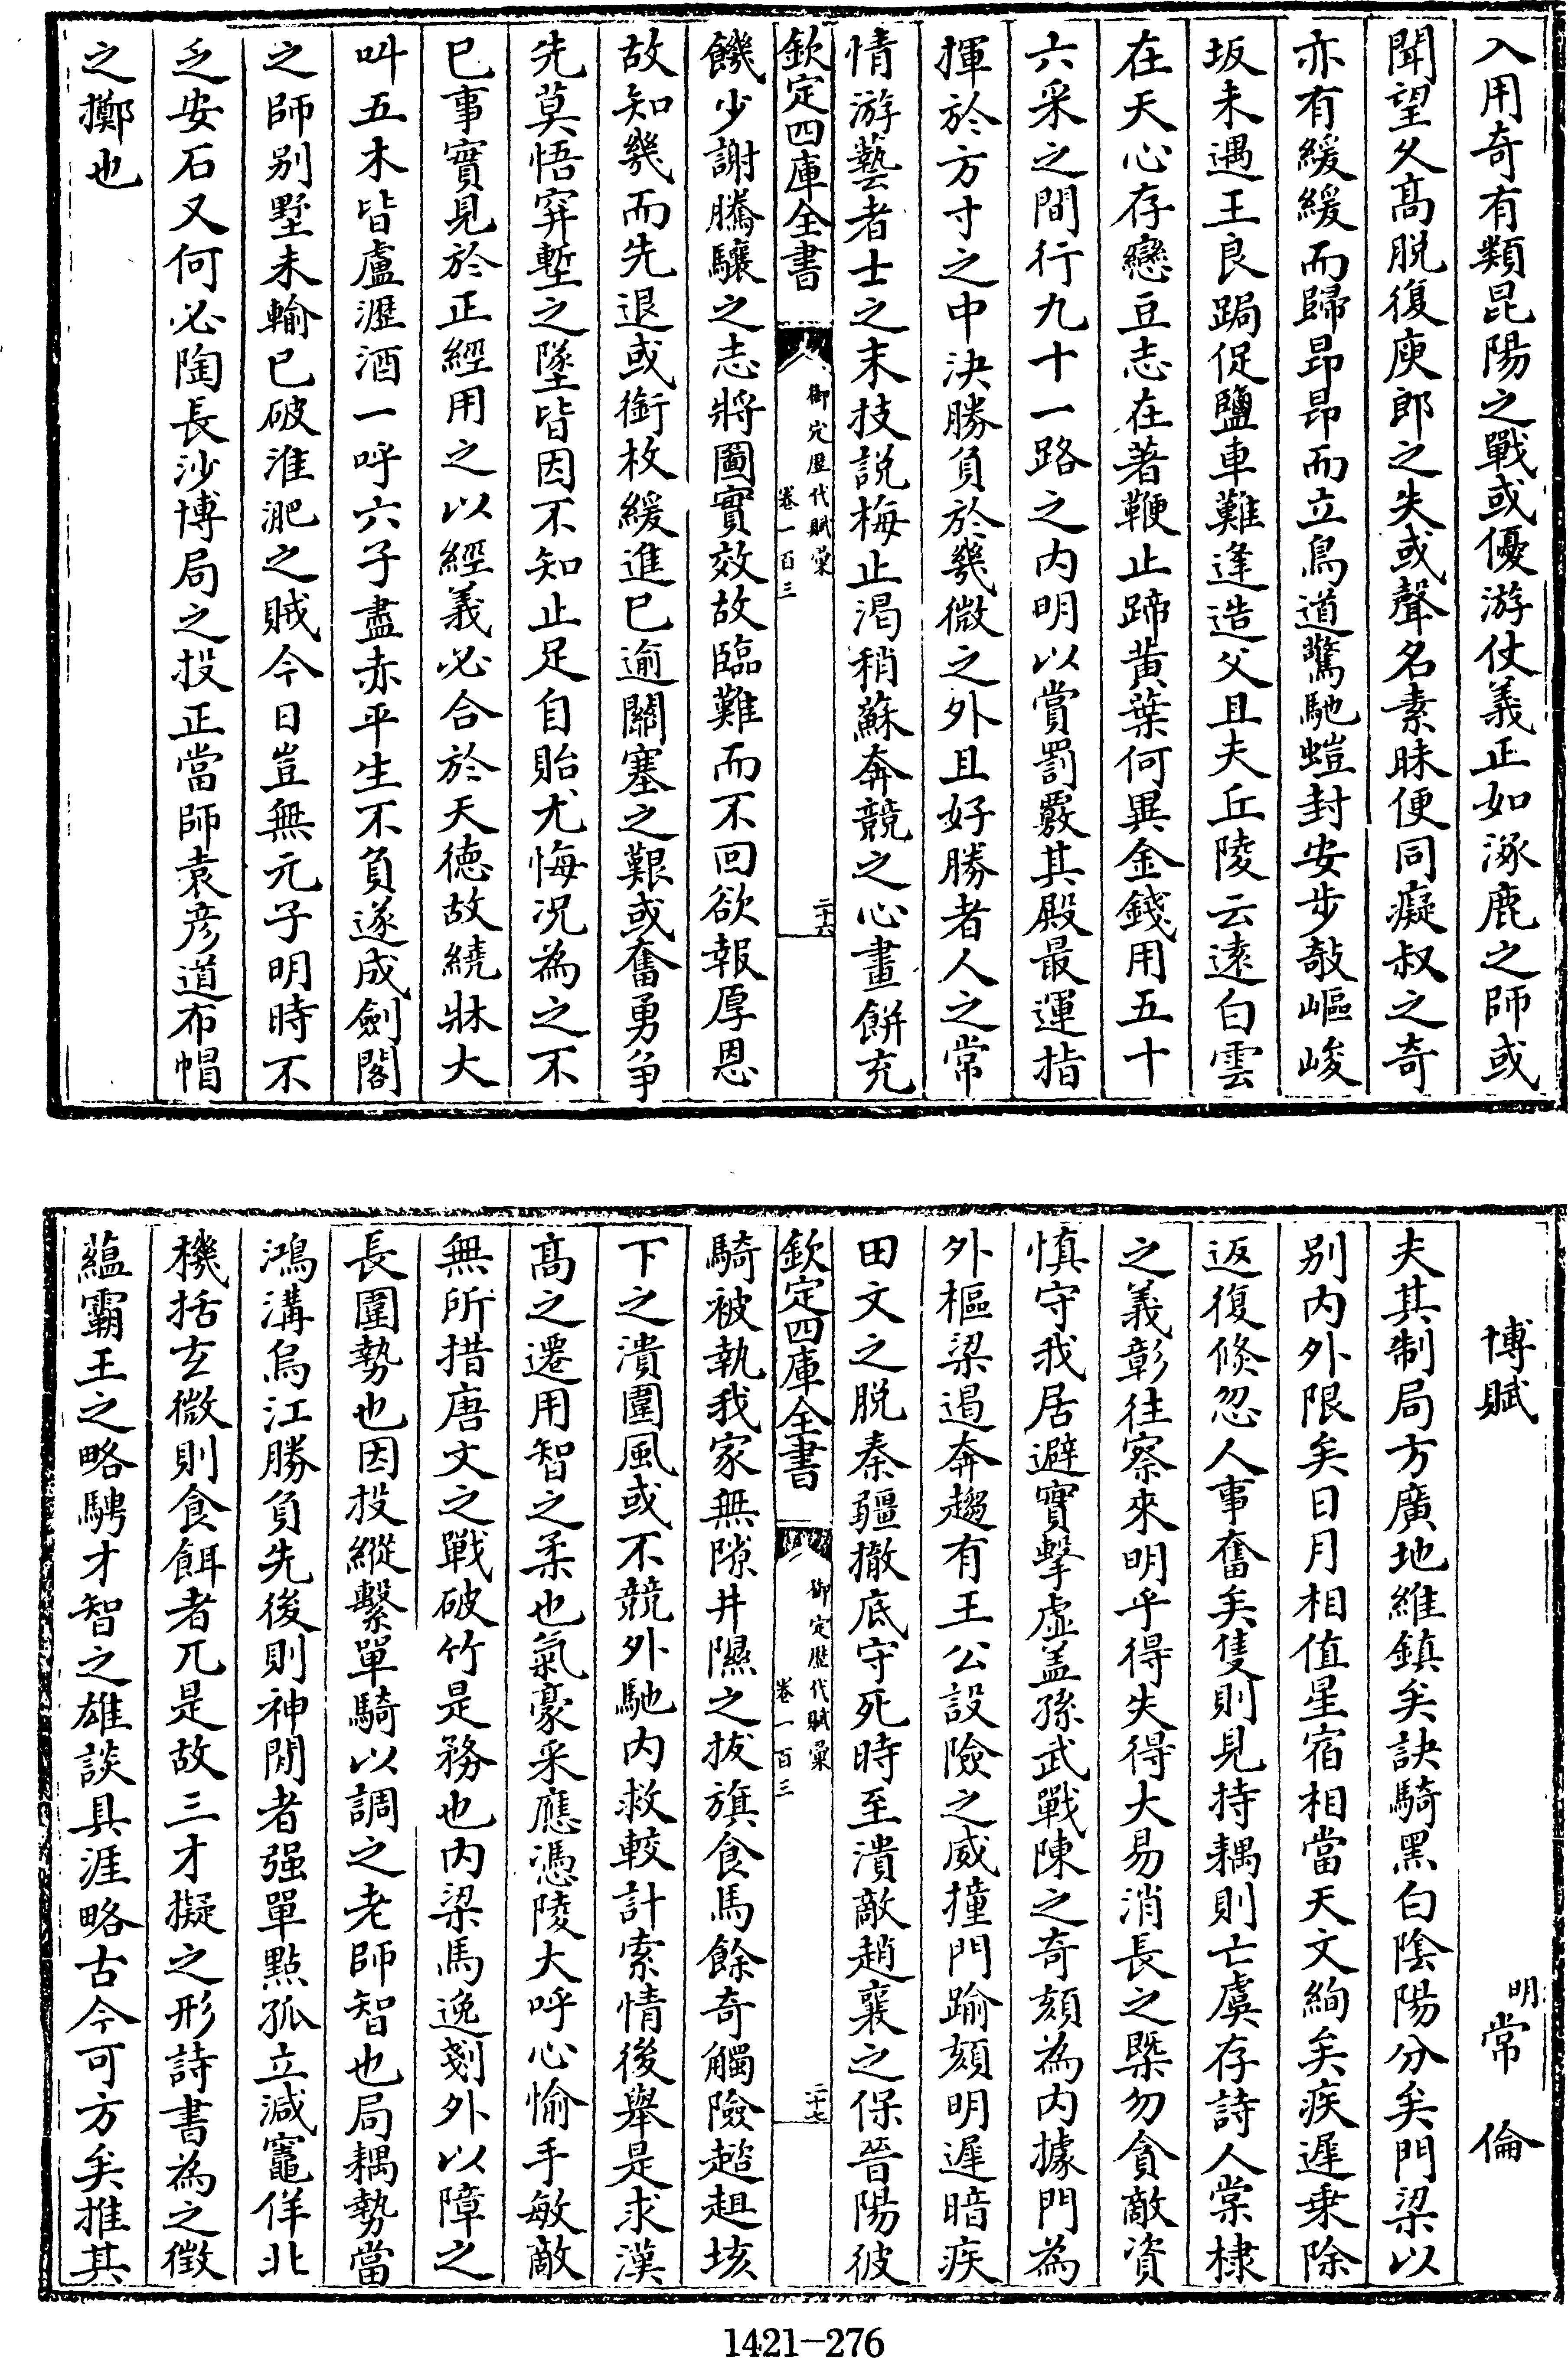 入用奇有類昆陽之戰或優游仗義正如涿鹿之師或
聞望久高脱復庾郎之失或聲名素昧便同癡叔之奇
亦有緩緩而歸昂昂而立鳥道驚馳螘封安步敧嶇峻
坂未遇王良跼促鹽車難逢造父且夫丘陵云遠白雲
在天心存戀豆志在著鞭止蹄黄葉何異金錢用五十
六采之間行九十一路之内明以賞罰覈其殿最運指
揮於方寸之中決勝負於幾微之外且好勝者人之常
情游藝者士之末技説梅止渴稍蘇奔競之心畫餅充
欽定四庫全書
御定歷代賦彙
卷一百三
二十六
饑少謝騰驤之志將圖實效故臨難而不回欲報厚恩
故知幾而先退或銜枚緩進已逾關塞之艱或奮勇争
先莫悟穽塹之墜皆因不知止足自貽尤悔况為之不
已事實見於正經用之以經義必合於天德故繞牀大
叫五木皆盧瀝酒一呼六子盡赤平生不負遂成劍閣
之師别墅未輸已破淮淝之賊今日豈無元子明時不
乏安石又何必陶長沙博局之投正當師袁彦道布帽
之擲也
博賦
明常倫
夫其制局方廣地維鎮矣訣騎黑白陰陽分矣門梁以
别内外限矣日月相值星宿相當天文絢矣疾遲乗除
返復倏忽人事奮矣隻則見持耦則亡虞存詩人棠棣
之義彰往察來明乎得失得大易消長之槩勿貪敵資
慎守我居避實擊虚盖孫武戰陳之奇頦為内據門為
外樞梁遏奔趨有王公設險之威撞門踰頦明遲暗疾
田文之脱秦疆撤底守死時至潰敵趙襄之保晉陽彼
欽定四庫全書
御定歷代賦彙
卷一百三
二十七
騎被執我家無隙井隰之拔旗食馬餘奇觸險趦趄垓
下之潰圍風或不競外馳内救較計索情後舉是求漢
高之遷用智之柔也氣豪采應憑陵大呼心愉手敏敵
無所措唐文之戰破竹是務也内梁馬逸剗外以障之
長圍勢也因投縱繫單騎以調之老師智也局耦勢當
鴻溝烏江勝負先後則神閒者强單㸃孤立減竈佯北
機括玄微則食餌者兀是故三才擬之形詩書為之徵
藴霸王之略騁才智之雄談具涯略古今可方矣推其
1421-276